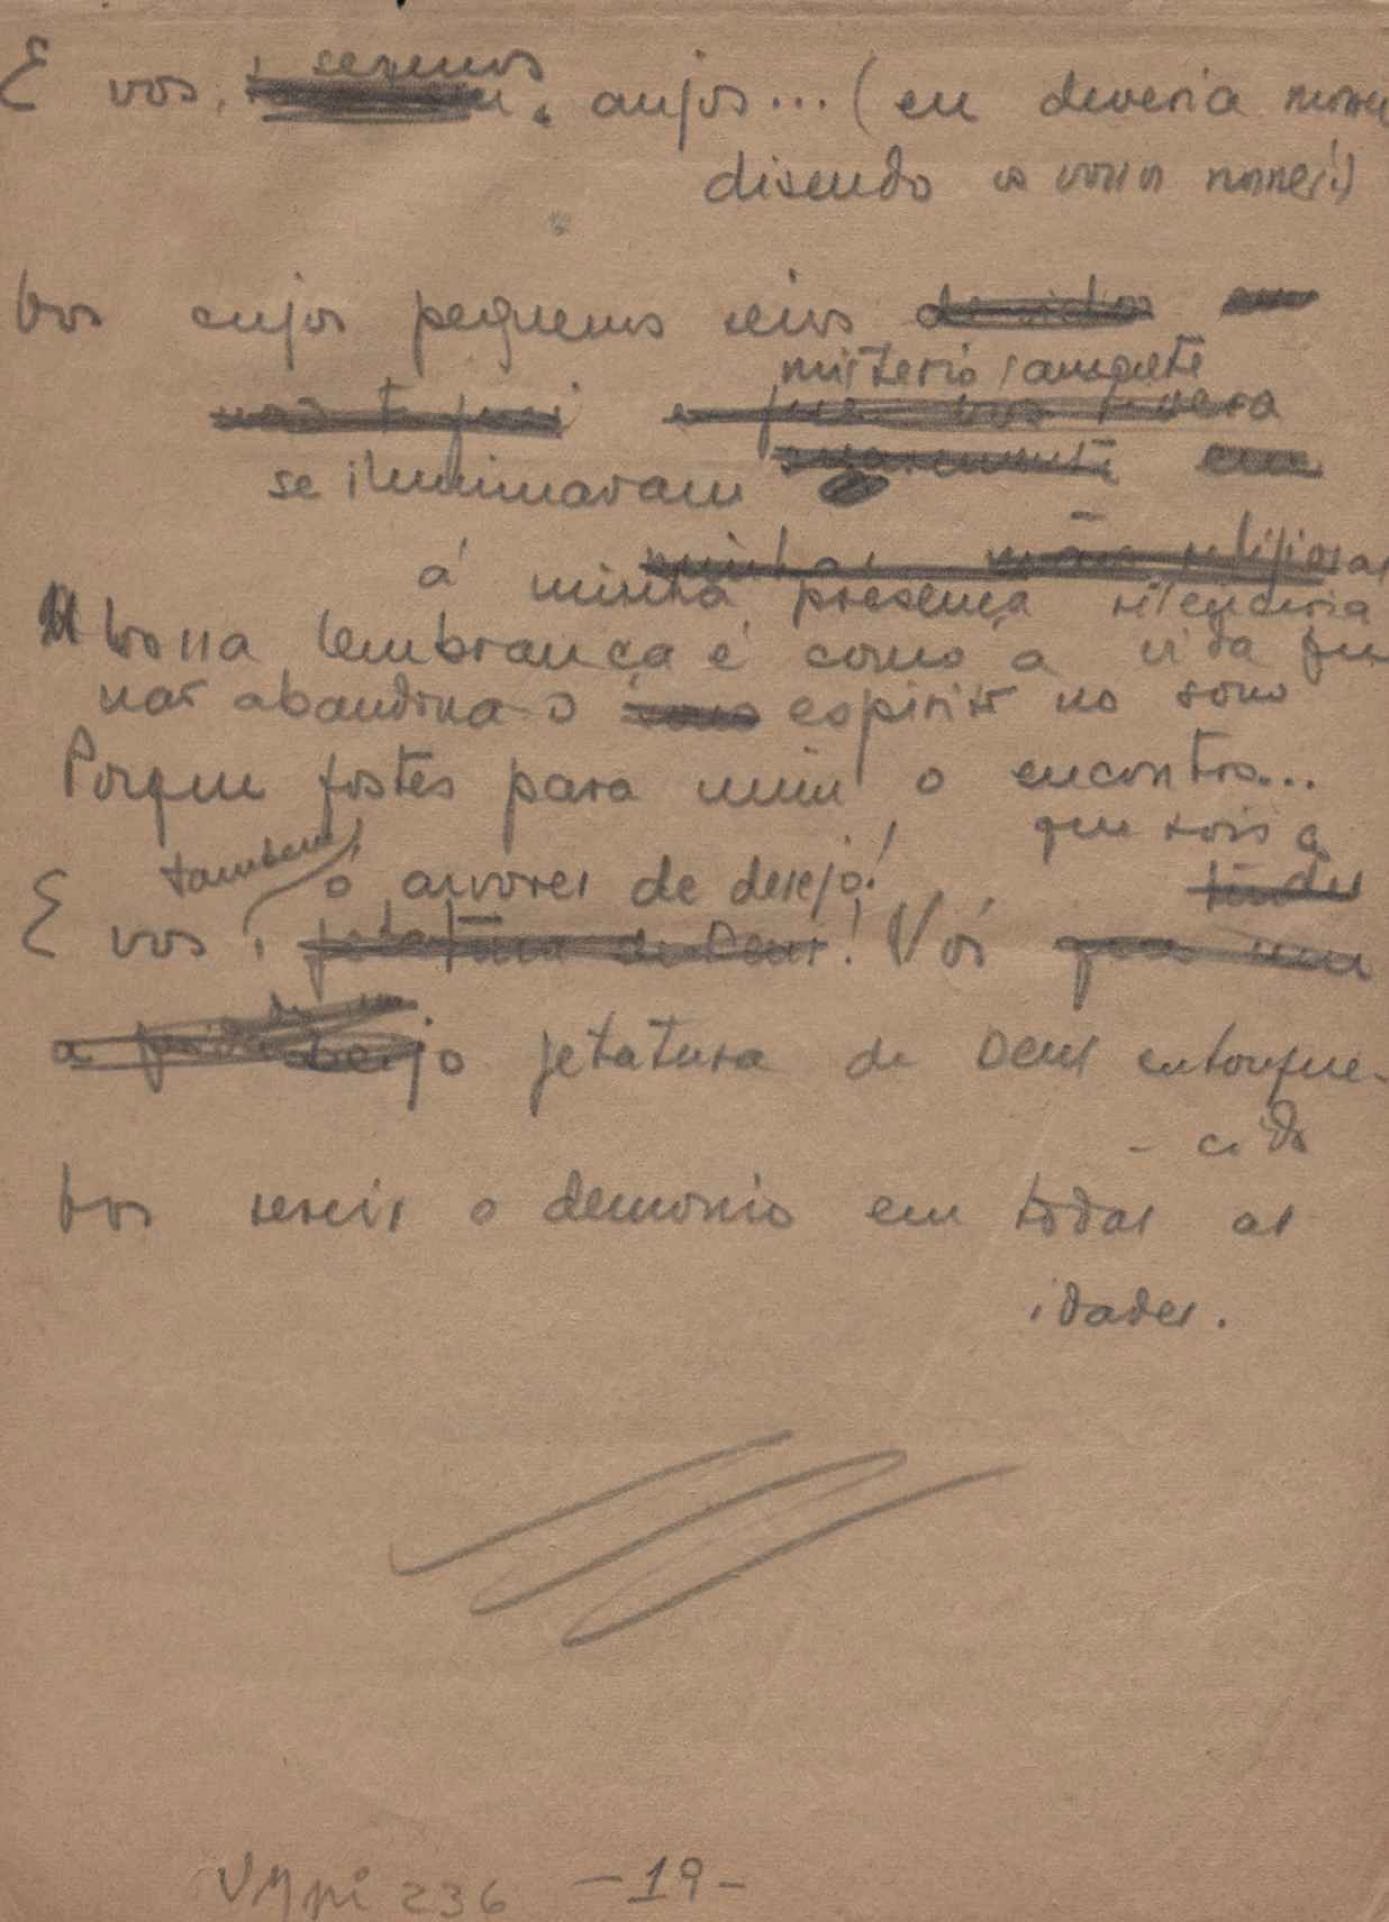 E vos, serenos anjos... (eu deveria morrer
disendo os vossos nomes!)
Vos cujos pequenos seios
misterio
se iluminavam
á minha presença silenciosa
Vossa lembrança é como a vida que
não abandona o espirito no sono
Porque fostes para mim o encontro...
que sois a
tambem,
ó arvores de desejo!
E vos, ! Vós
jetatura de Deus enlouque-
- cido
Vos sereis o demonio em todas as
idades.
VMpi 236 -19-